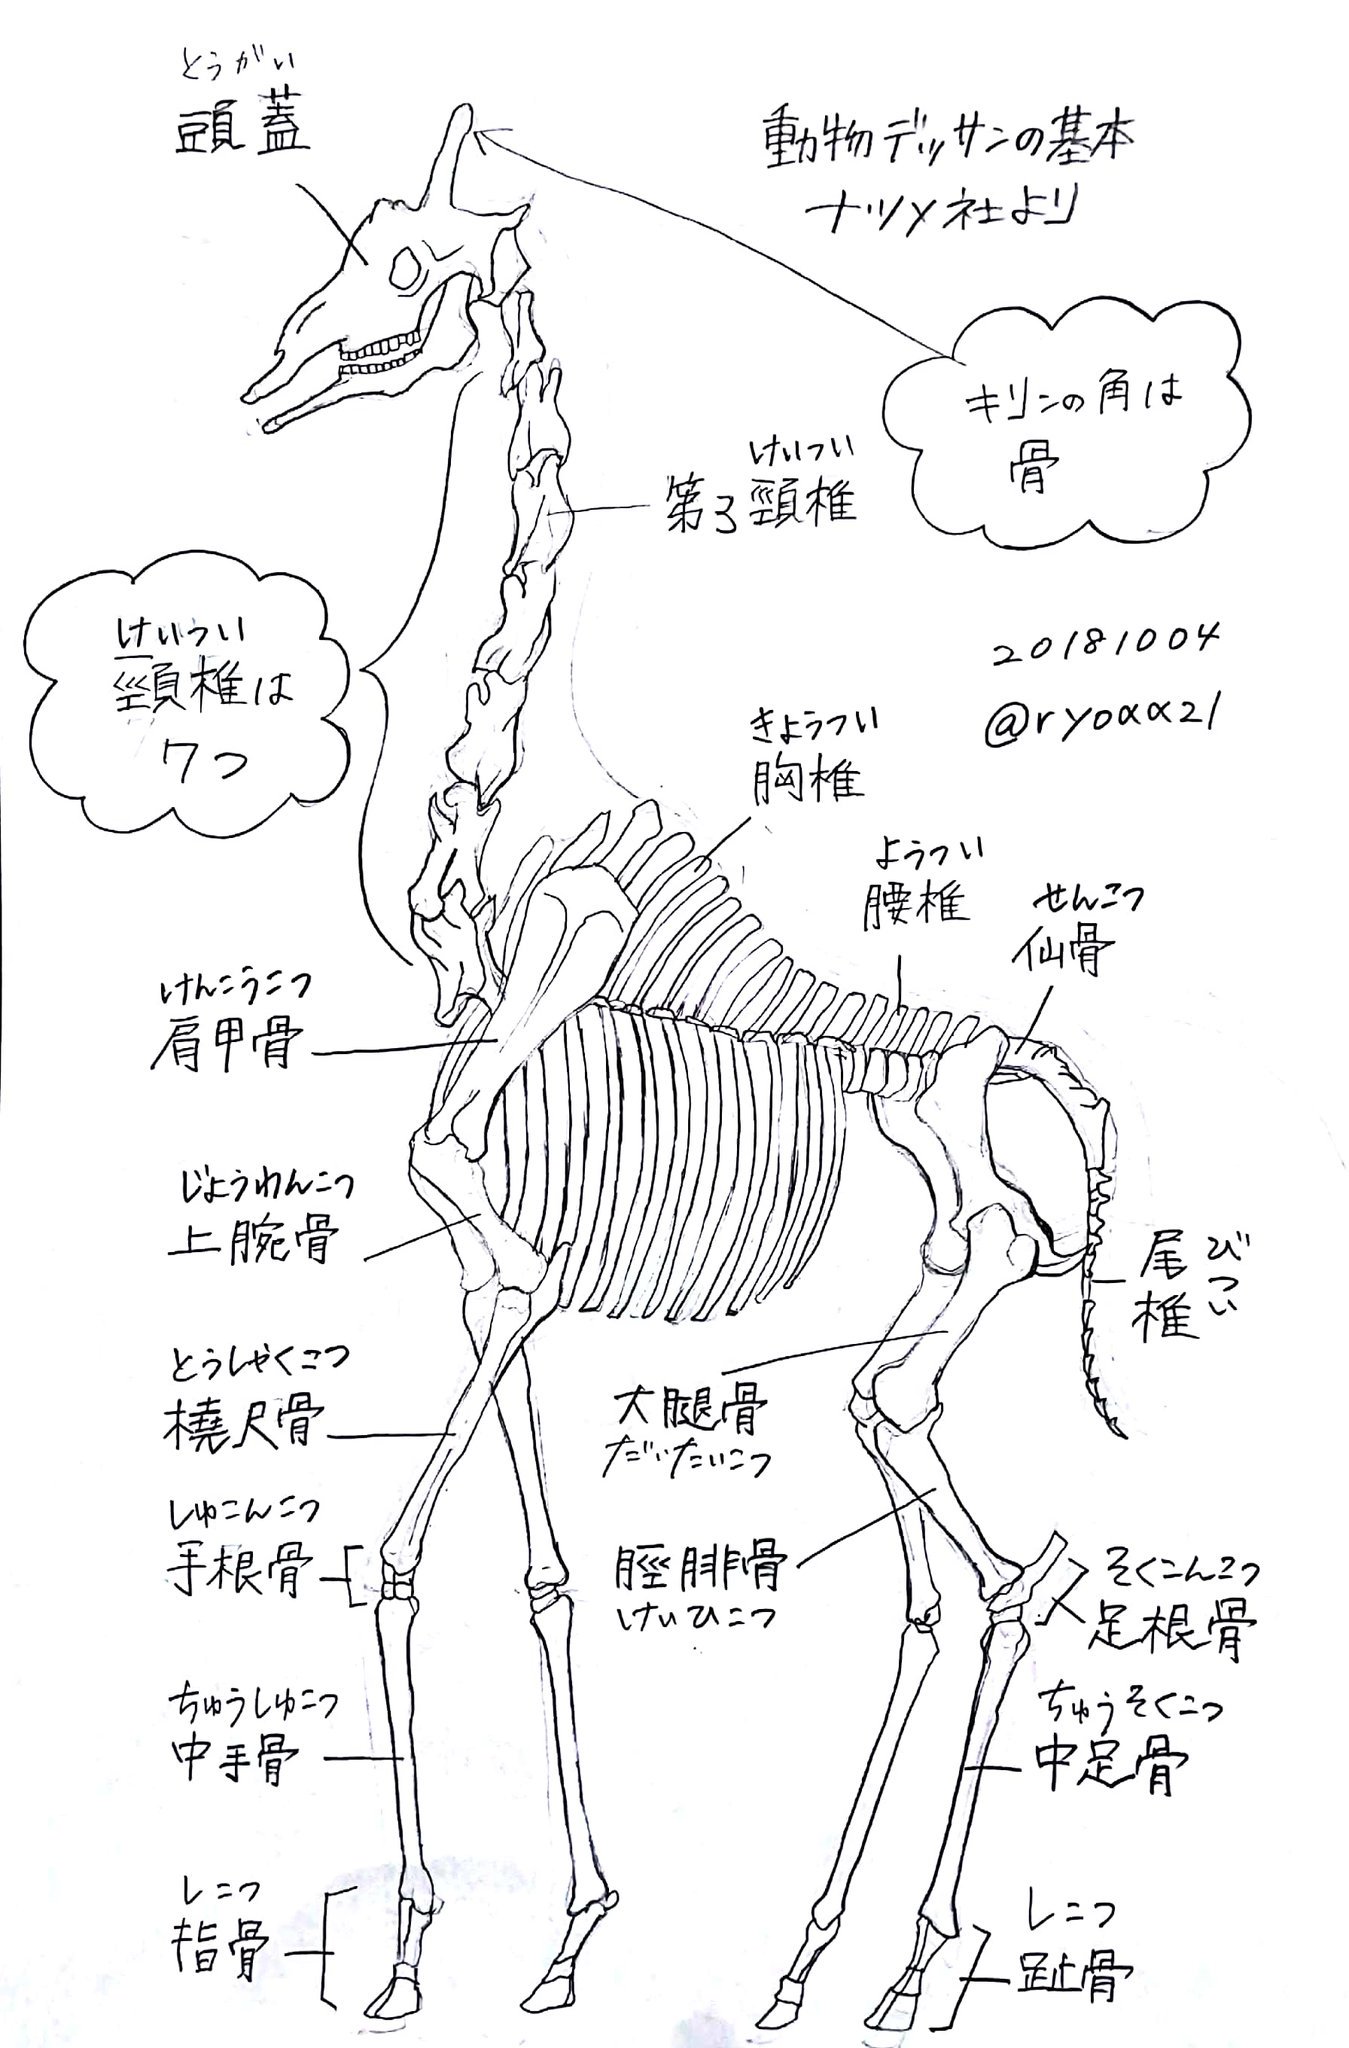 とうがい
頭蓋
動物デッサンの基本
ナツメ社より
キリンの角は
骨
けいつい
第3頸椎
けいつい
頸椎は
7つ
20181004
@ryoαα21
きょうつい
胸椎
ようつい
腰椎
せんこつ
仙骨
けんこうこつ
肩甲骨
じょうわんこつ
上腕骨
びつい
尾椎
とうしゃくこつ
橈尺骨
大腿骨
だいたいこつ
しゅこんこつ
手根骨
脛腓骨
けいひこつ
そくこんこつ
足根骨
ちゅうしゅこつ
中手骨
ちゅうそくこつ
中足骨
しこつ
指骨
しこつ
趾骨